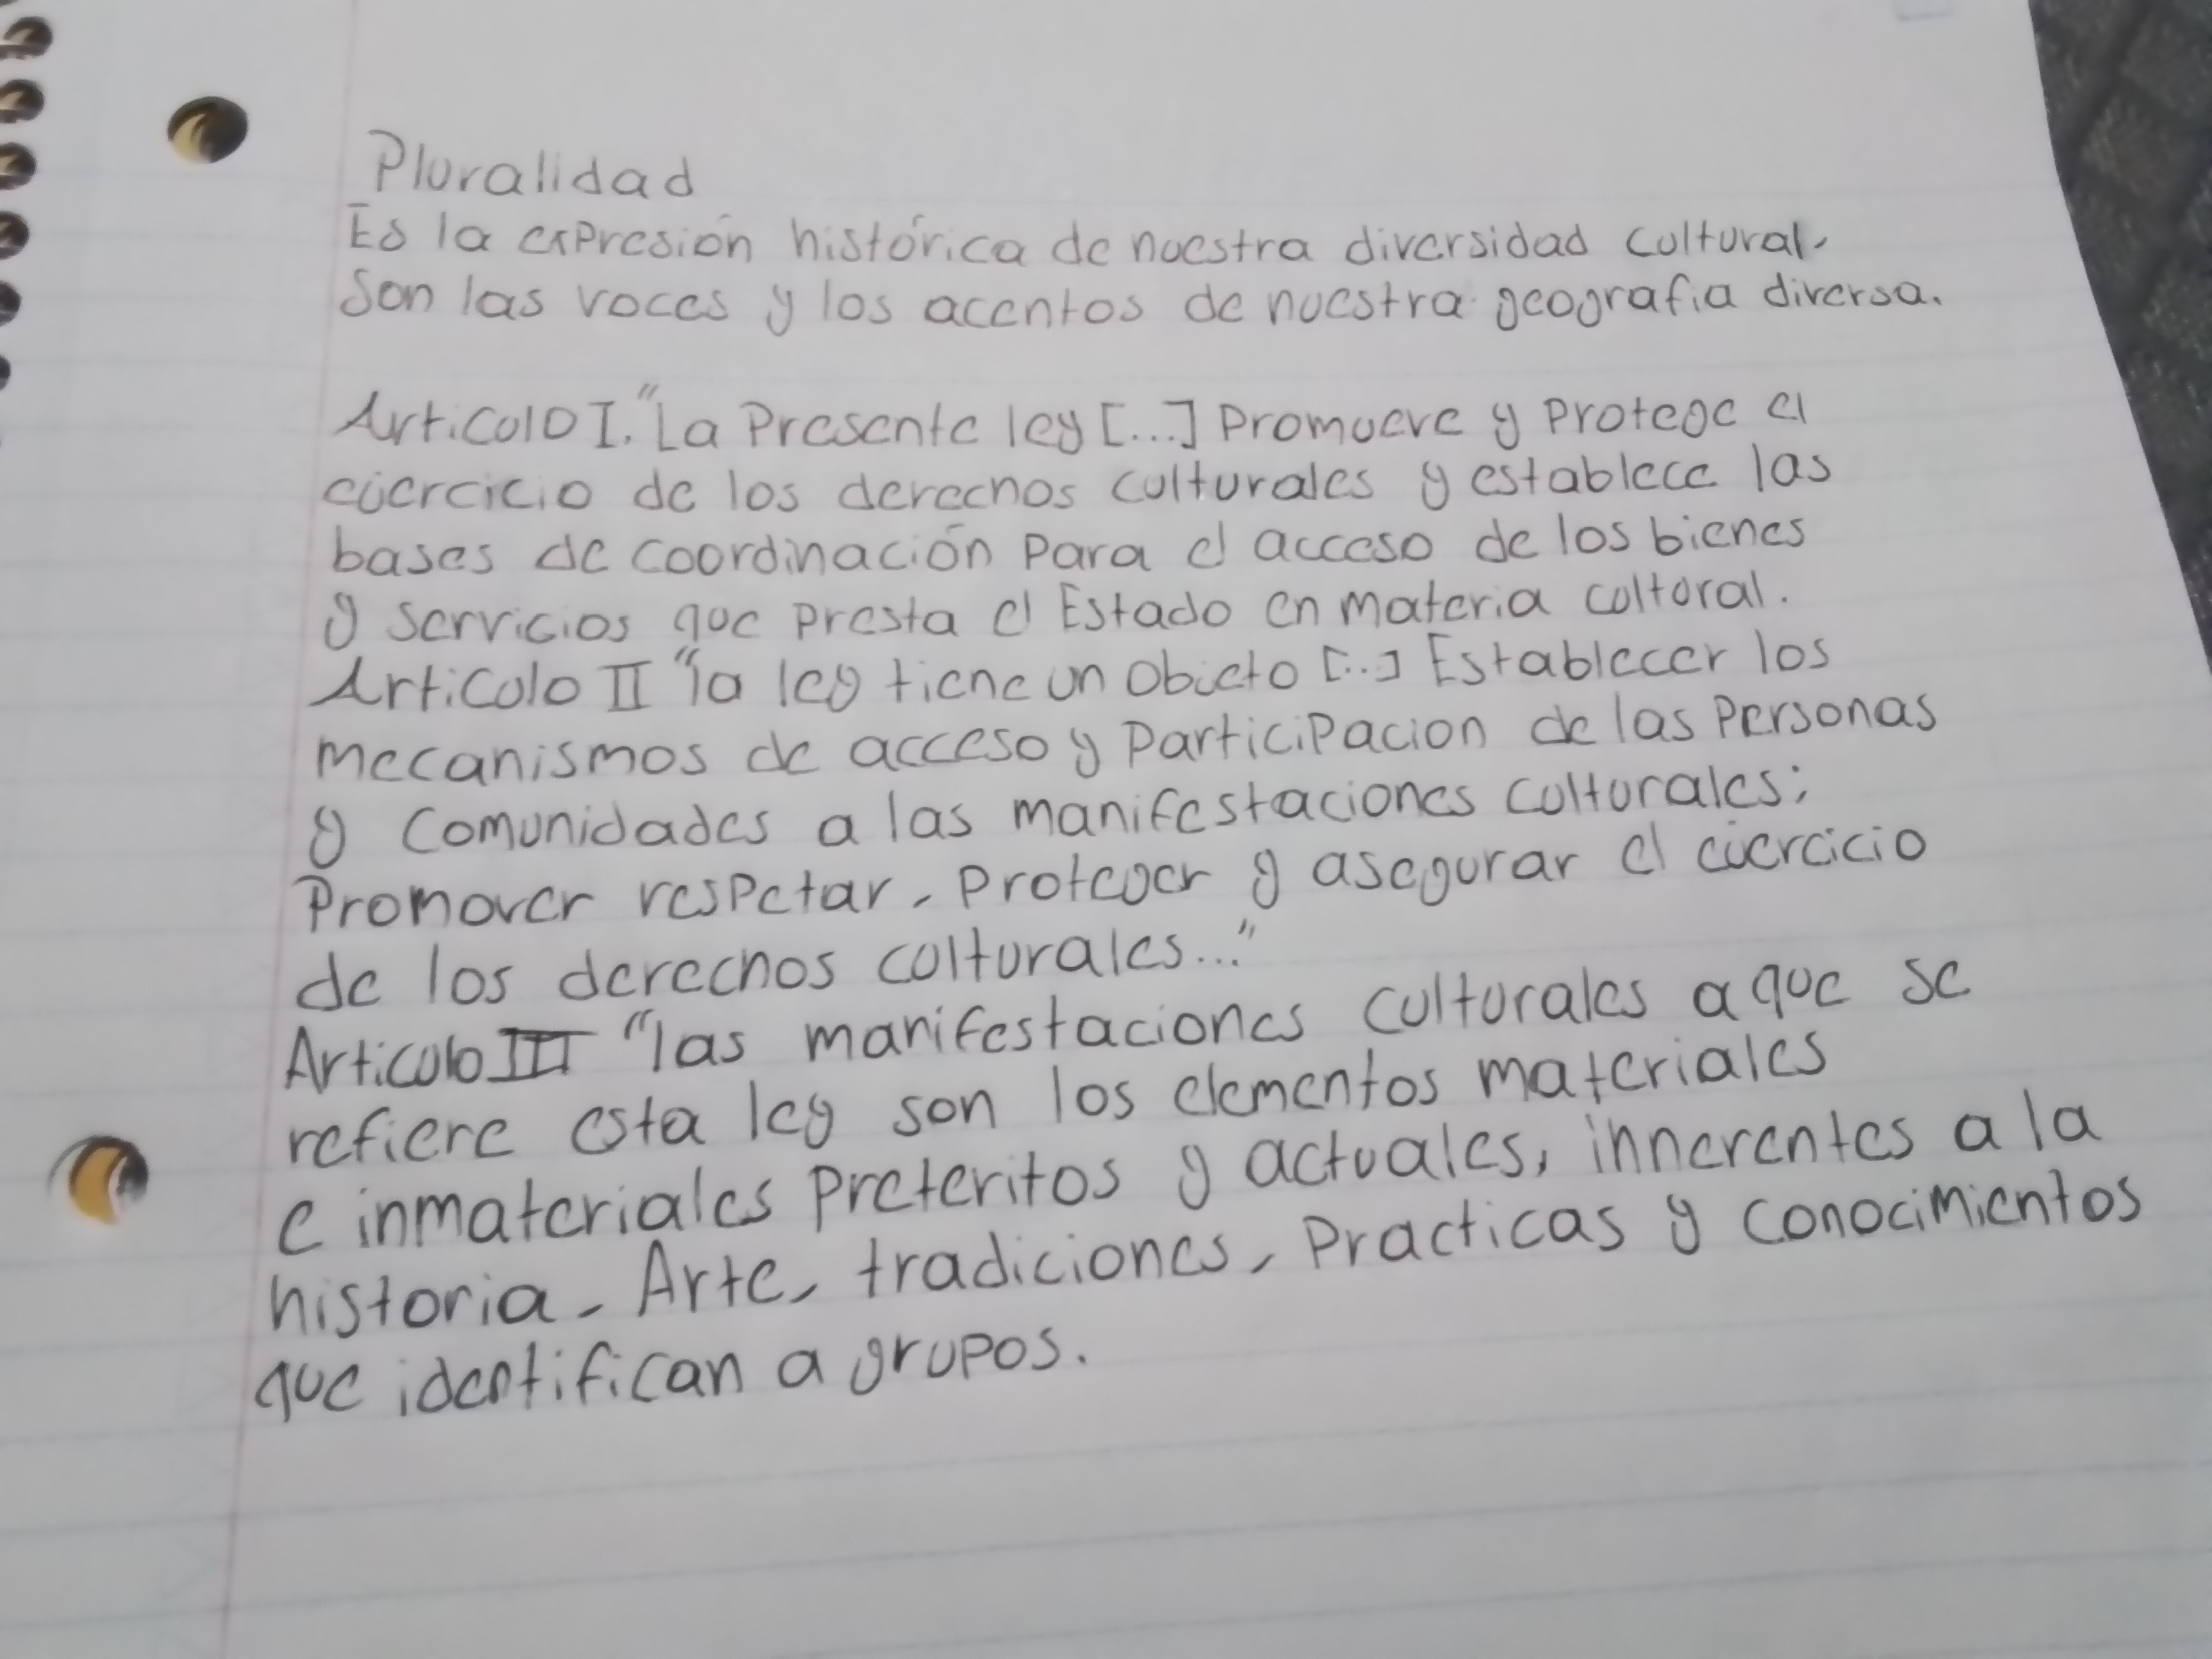 Pluralidad
Es la expresión histórica de nuestra diversidad cultural,
Son las voces y los acentos de nuestra geografia diversa.
Articulo I. "La Presente ley [...] Promueve y Protege el
ejercicio de los derechos culturales y establece las
bases de coordinación Para el acceso de los bienes
y servicios que presta el Estado en materia cultural.
Articulo II "la ley tiene un objeto [...] Establecer los
mecanismos de acceso y participacion de las Personas
y comunidades a las manifestaciones culturales;
Promover respetar, Proteger y asegurar el ejercicio
de los derechos culturales..."
Articulo III "las manifestaciones culturales a que se
refiere esta ley son los elementos materiales
e inmateriales preteritos y actuales, inherentes a la
historia, Arte, tradiciones, Practicas y conocimientos
que identifican a grupos.